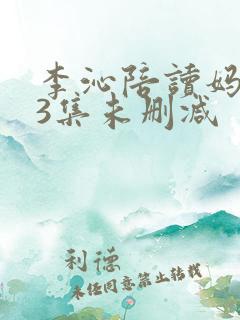 李沁陪讀妈
3集未删减
利德
未经同意禁止转载